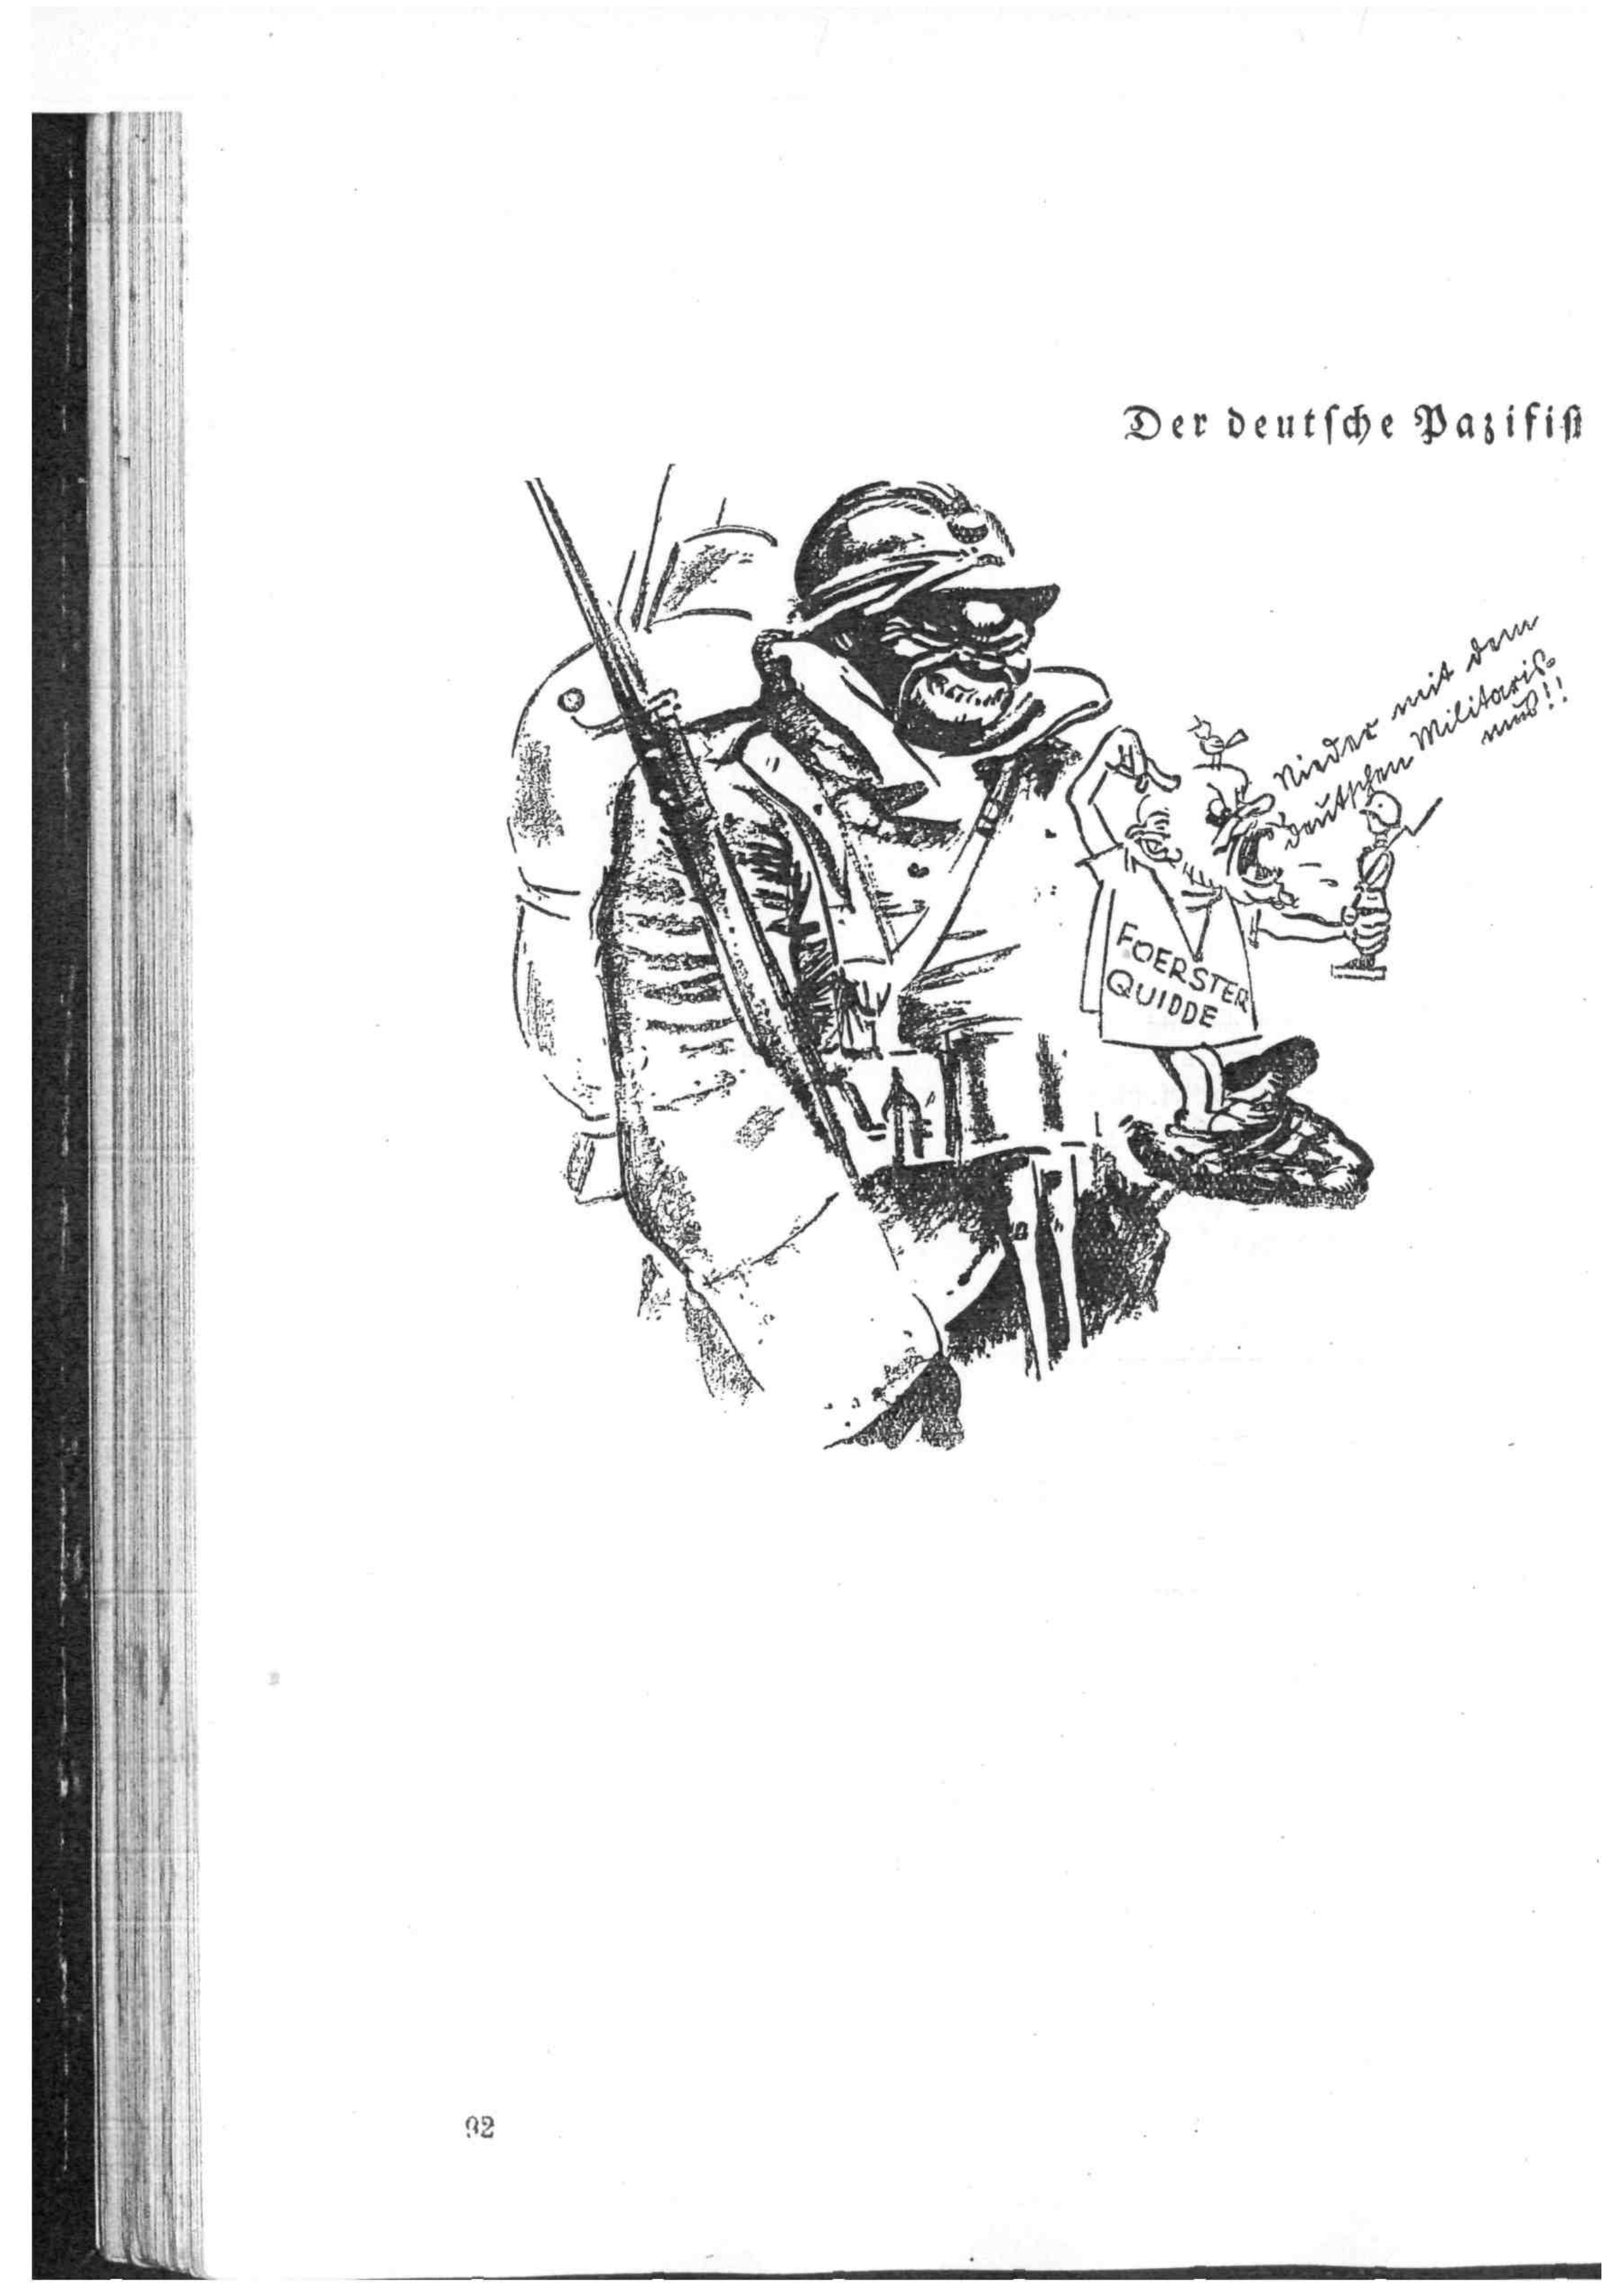 Der deutsche Pazifist
Nieder mit dem
deutschen Militaris-
mus!!
FOERSTER
QUIDDE
92